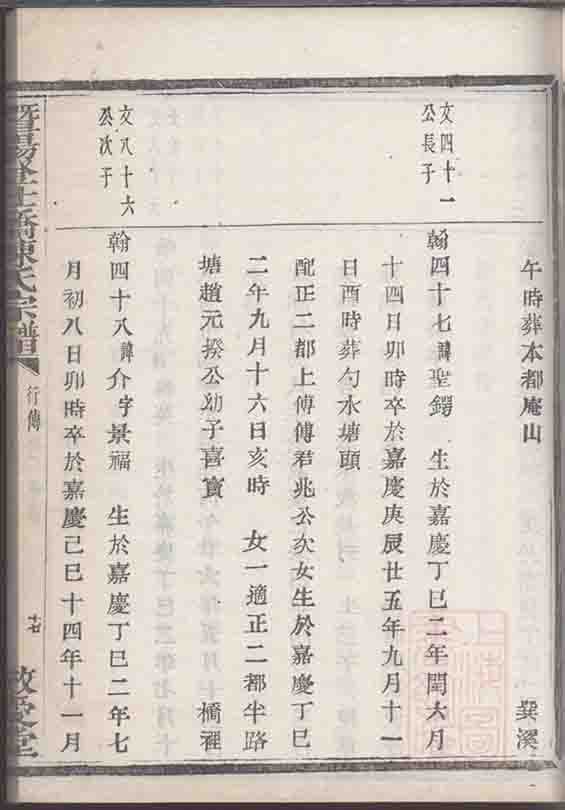 午時葬本都庵山 巽溪
文四十一
公長子
翰四十七諱聖鍔 生於嘉慶丁巳二年閏六月
十四日卯時卒於嘉慶庚辰廿五年九月十一
日酉時葬勺水塘頭
配正二都上傅傅君兆公次女生於嘉慶丁巳
二年九月十六日亥時 女一適正二都半路
塘趙元揆公幼子喜寶 橋裡
文八十六
公次子
翰四十八諱介字景福 生於嘉慶丁巳二年七
月初八日卯時卒於嘉慶己巳十四年十一月
暨陽 橋陳氏宗譜 行傳 敬愛堂